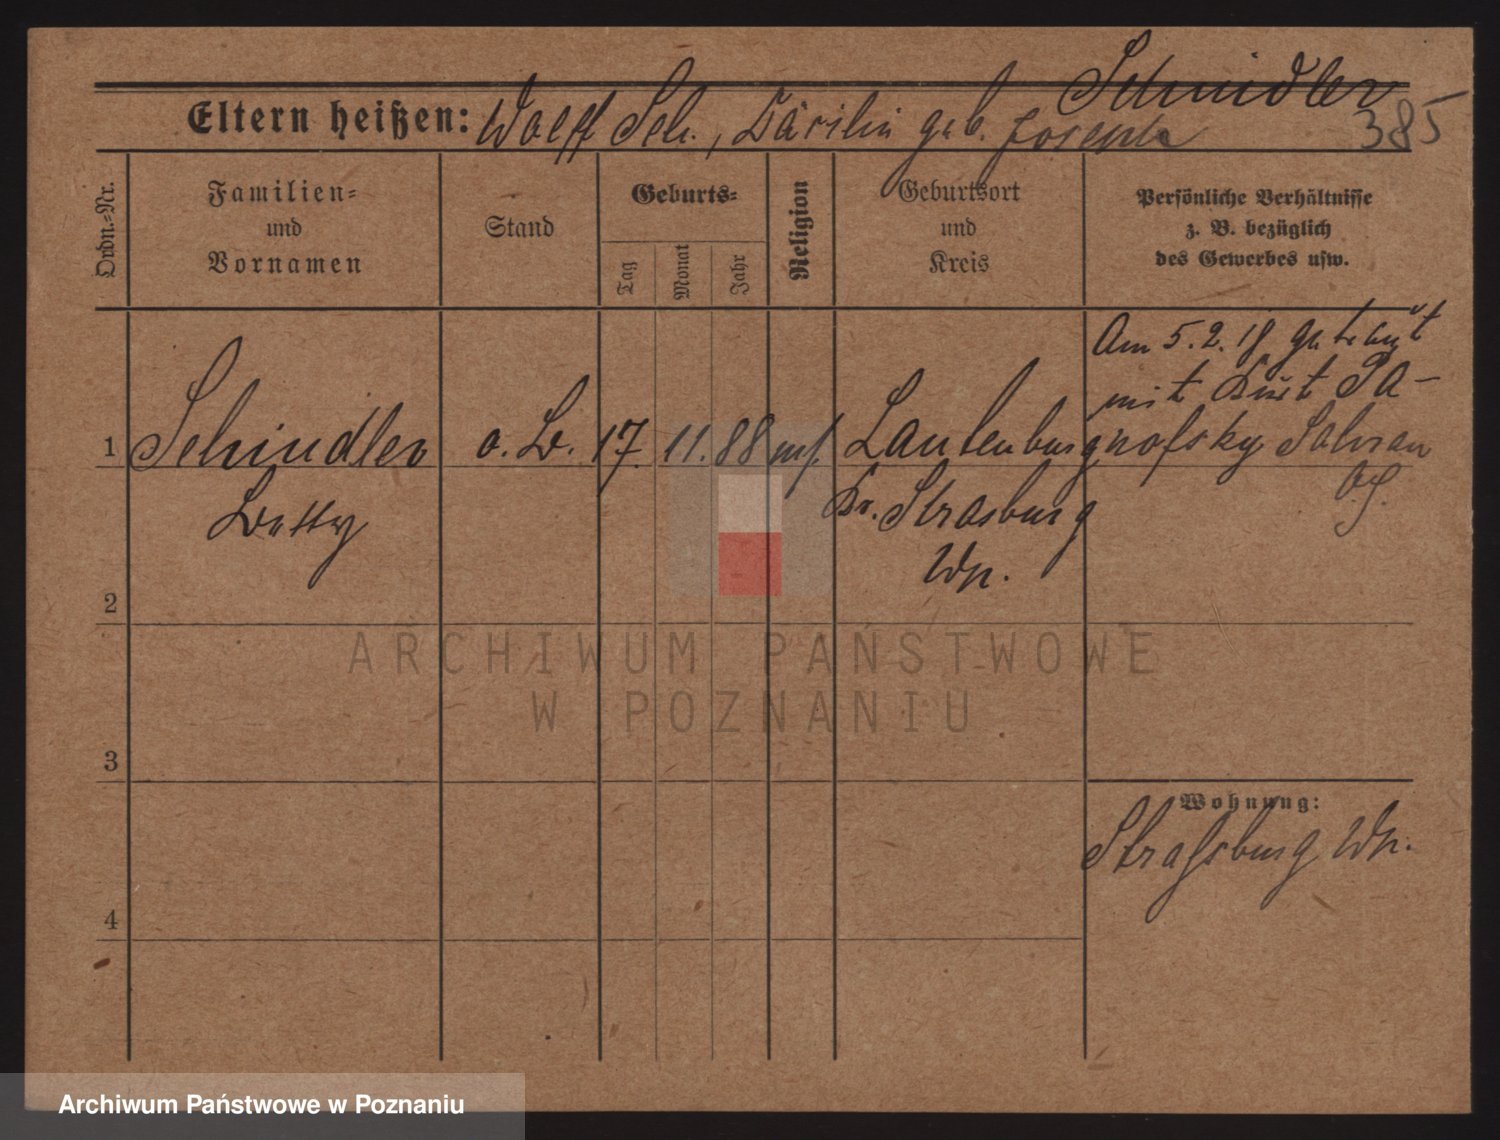 Schindler
385
Eltern heißen: Wolff Sch., Cäcilie geb. Joseph
Ordn.-Nr.
Familien-
und
Vornamen
Stand
Geburts-
Tag
Monat
Jahr
Religion
Geburtsort
und
Kreis
Persönliche Verhältnisse
z. B. bezüglich
des Gewerbes usw.
1
Schindler
Betty
o. B.
17.
11.
88
mos.
Lautenburg
Kr. Strasburg
Wpr.
Am 5.2.18 getraut
mit Kurt Pa-
nofsky
2
3
4
Wohnung:
Straßburg Wpr.
ARCHIWUM PAŃSTWOWE
W POZNANIU
Archiwum Państwowe w Poznaniu